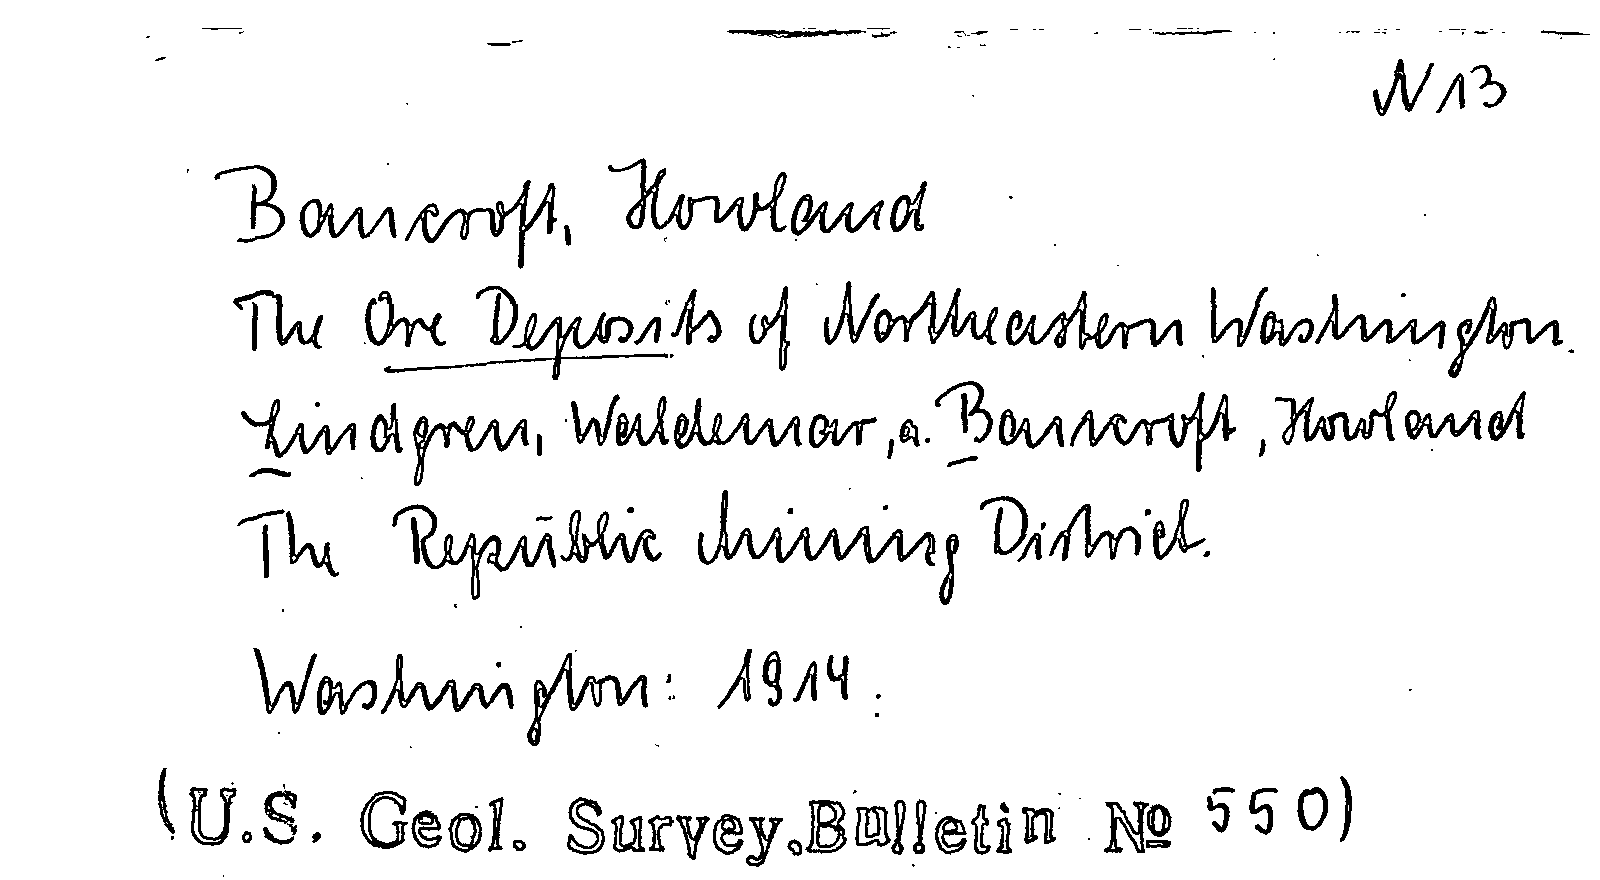 N 13
Bancroft, Howland
The Ore Deposits of Northeastern Washington.
Lindgren, Waldemar, a. Bancroft, Howland
The Republic Mining District.
Washington: 1914.
(U.S. Geol. Survey. Bulletin № 550)